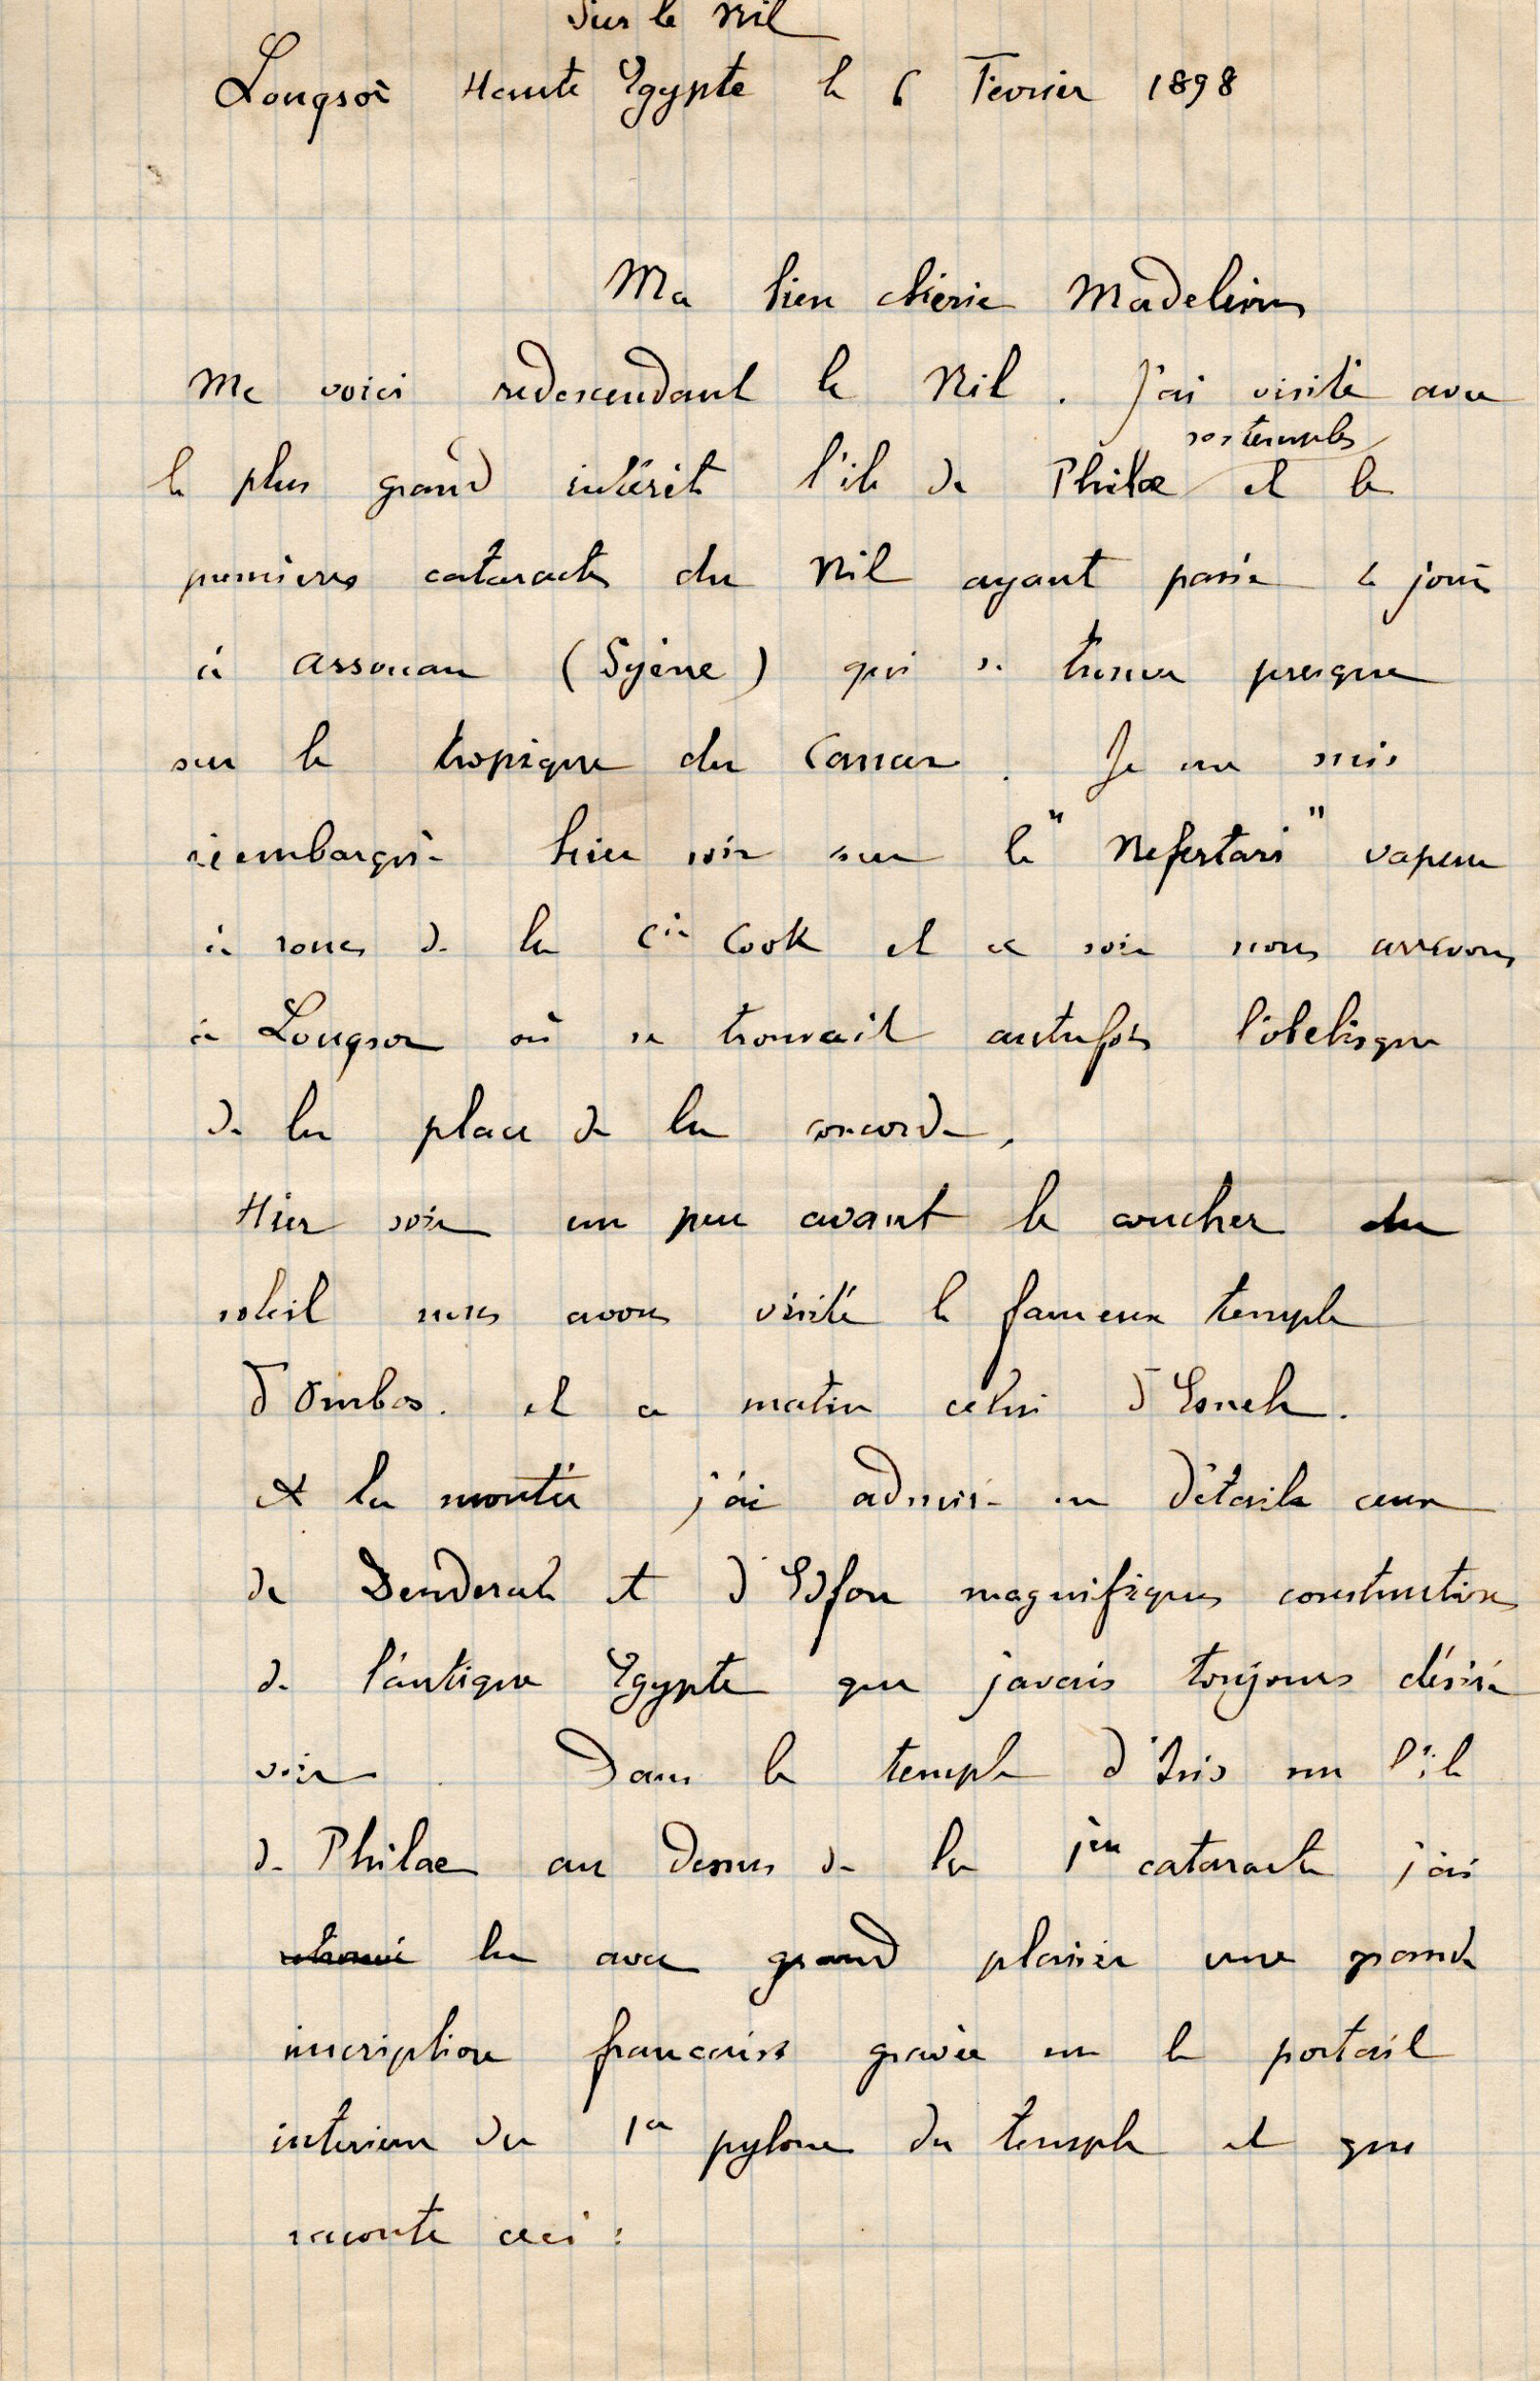 Sur le Nil
Louqsor Haute Egypte le 6 Fevrier 1898
Ma bien chérie Madeleine
Me voici redescendant le Nil. J'ai visité avec
ses temples
le plus grand intérêt l'ile de Philœ et la
premieres cataracte du Nil ayant passé jours
à Assouan (Syène) qui se trouve presque
sur le tropique du Cancer. Je me suis
réembarqué hier soir sur le "Nefertari" vapeur
à roues de la Cie Cook et ce soir nous arrivons
à Louqsor où se trouvait autrefois l'obelisque
de la place de la concorde.
Hier soir un peu avant le coucher du
soleil nous avons visité le fameux temple
d'Ombos. et ce matin celui d'Esneh.
A la montée j'ai admiré en détails ceux
de Denderah et d'Edfou magnifiques constructions
de l'antique Egypte que javais toujours désiré
voir. Dans le temple d'Isis sur l'ile
de Philae au dessus de la 1ere cataracte j'ai
lu avec grand plaisir une grande
inscription francaise gravée sur le portail
interieur du 1er pylone du temple et qui
raconte ceci :